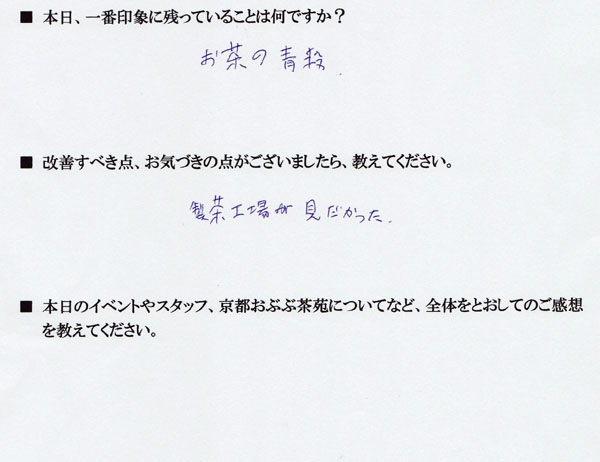 ■ 本日、一番印象に残っていることは何ですか？
お茶の青殺.
■ 改善すべき点、お気づきの点がございましたら、教えてください。
製茶工場が見だかった.
■ 本日のイベントやスタッフ、京都おぶぶ茶苑についてなど、全体をとおしてのご感想
を教えてください。